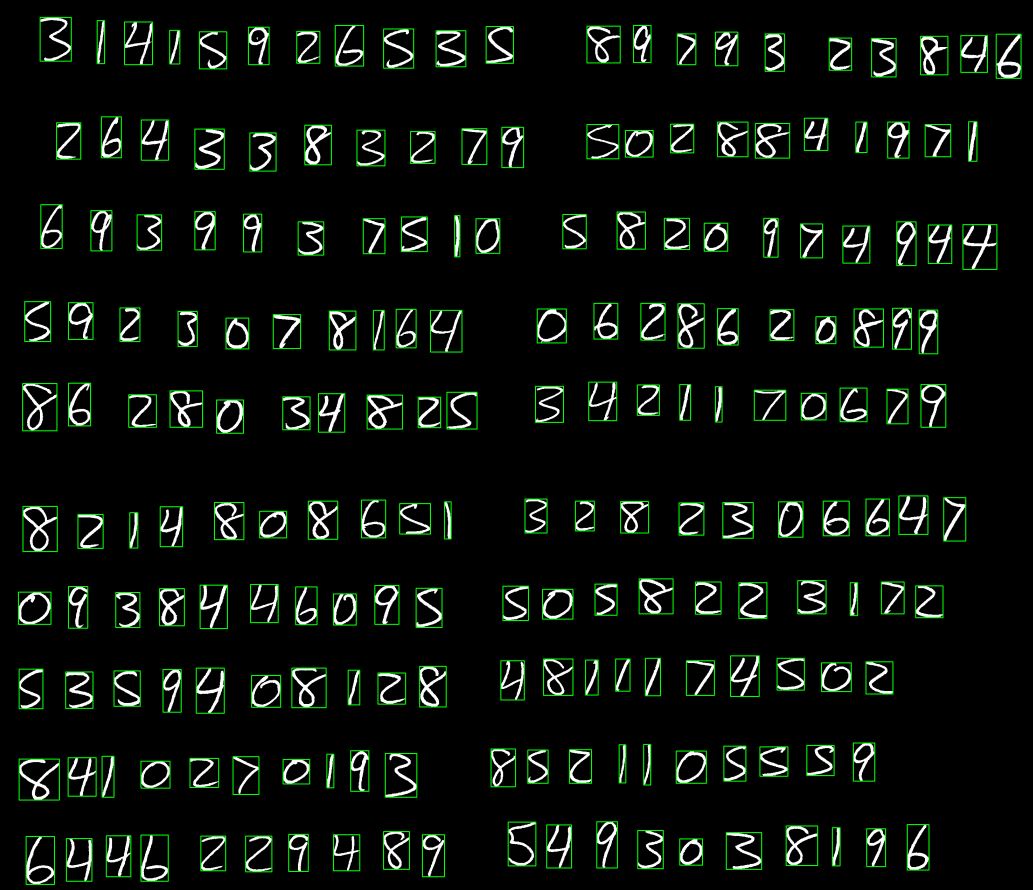 3 1 4 1 5 9 2 6 5 3 5 8 9 7 9 3 2 3 8 4 6
2 6 4 3 3 8 3 2 7 9 5 0 2 8 8 4 1 9 7 1
6 9 3 9 9 3 7 5 1 0 5 8 2 0 9 7 4 9 4 4
5 9 2 3 0 7 8 1 6 4 0 6 2 8 6 2 0 8 9 9
8 6 2 8 0 3 4 8 2 5 3 4 2 1 1 7 0 6 7 9
8 2 1 4 8 0 8 6 5 1 3 2 8 2 3 0 6 6 4 7
0 9 3 8 4 4 6 0 9 5 5 0 5 8 2 2 3 1 7 2
5 3 5 9 4 0 8 1 2 8 4 8 1 1 1 7 4 5 0 2
8 4 1 0 2 7 0 1 9 3 8 5 2 1 1 0 5 5 5 9
6 4 4 6 2 2 9 4 8 9 5 4 9 3 0 3 8 1 9 6